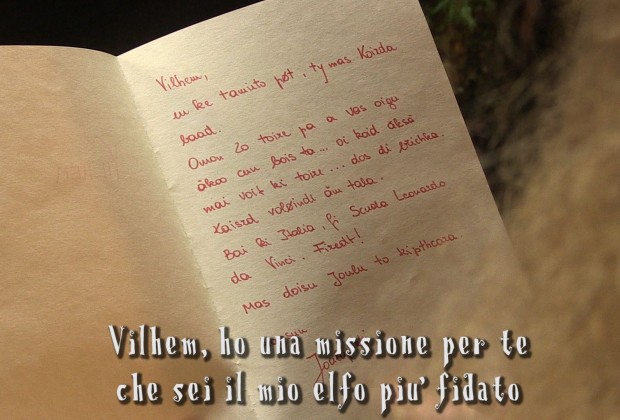 Vilhem,
eu ke tamuto pot, ty mas Koirda
baad.
Omon Zo toire pa a vas oigu
äkoo cun bois ta... oi koid äksä
mäi voit ki toire... dos di
Kaisrd voloindi äm tala.
Bai Italia, Scuola Leonardo
da Vinci. Firedt!
Mas doisu Joulu to kipthcora
Vilhem, ho una missione per te
che sei il mio elfo piu' fidato